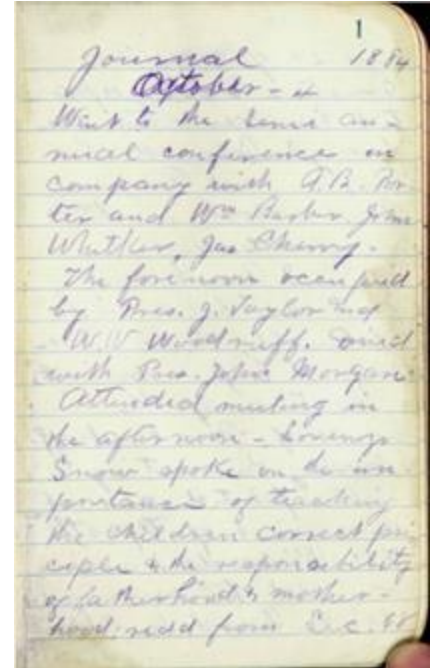 1
Journal 1884
October - 4
Went to the Semi an-
nual conference in
company with A.B. Por-
ter and Wm Barber John
Whitker, Jas Cherry.
The forenoon occupied
by Pres. J. Taylor and
W.W. Woodruff. dined
with Pres. John Morgan
Attended meeting in
the afternoon - Lorenzo
Snow spoke on the im
portance of teaching
the children correct prin
ciple & the responsibility
of fatherhood & mother-
hood. read from